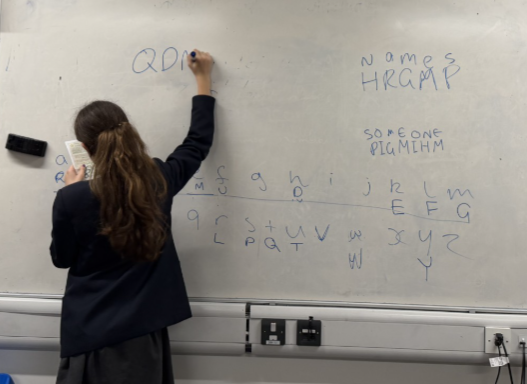 QDM
Names
HRGMP
SOMEONE
PIGMIHM
a e f g h i j k l m
R M U D E F G
q r s t u v w x y z
L P Q T W Y